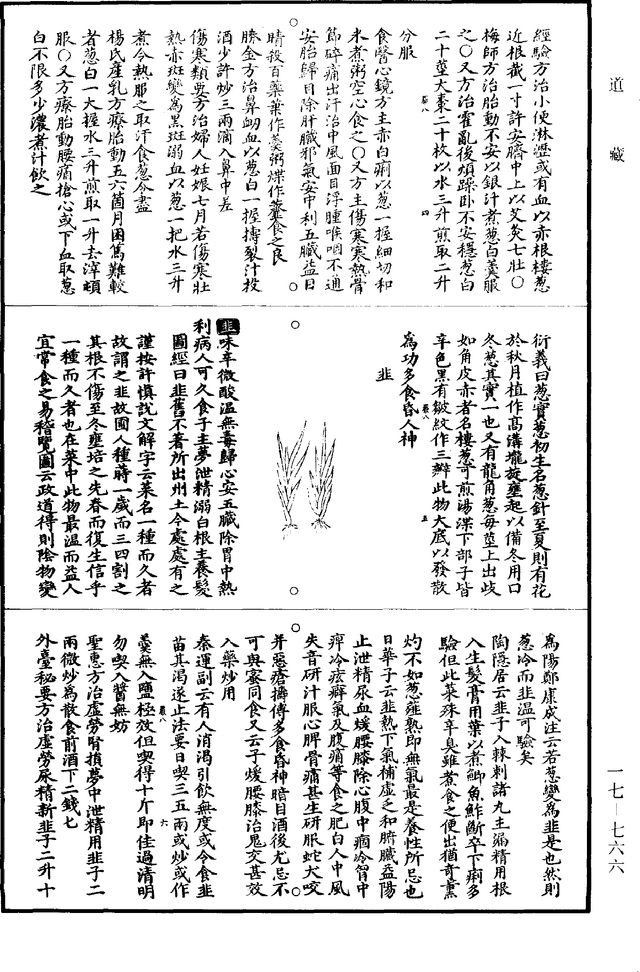 道藏
經驗方治小便淋澁或有血以赤根樓葱
近根截一寸許安臍中上以艾灸七壯〇
梅師方治胎動不安以銀汁煮葱白羹服
之〇又方治霍亂後煩躁卧不安穩葱白
二十莖大棗二十枚以水三升煎取二升
分服
食醫心鏡方主赤白痢以葱一握細切和
米煮粥空心食之〇又方主傷寒寒熱骨
節碎痛出汗治中風面目浮腫喉咽不通
安胎歸目除肝臟邪氣安中利五臟益目
睛殺百藥葉作羹粥煠作虀食之良
勝金方治鼻衂血以葱白一握擣裂汁投
酒少許炒三兩滴入鼻中差
傷寒類要方治婦人妊娠七月若傷寒壯
熱赤斑變為黑斑溺血以葱一把水三升
煮令熱服之取汗食葱令盡
楊氏產乳方療胎動五六箇月困篤難較
者葱白一大握水三升煎取一升去滓頓
服〇又方療胎動腰痛搶心或下血取葱
白不限多少濃煮汁飲之
衍義曰葱實葱初生名葱針至夏則有花
於秋月植作高溝壠旋壅起以備冬用曰
冬葱其實一也又有龍角葱每莖上出歧
如角皮赤者名樓葱可煎湯渫下部子皆
辛色黑有皺紋作三瓣此物大底以發散
為功多食昏人神
韭
韭味辛微酸溫無毒歸心安五臟除胃中熱
利病人可久食子主夢泄精溺白根主養髮
圖經曰韭舊不著所出州土今處處有之
謹按許慎說文解字云菜名一種而久者
故謂之韭故圃人種蒔一歲而三四割之
其根不傷至冬壅培之先春而復生信乎
一種而久者也在菜中此物最溫而益人
宜常食之易稽覽圖云政道得則陰物變
為陽鄭康成注云若葱變為韭是也然則
葱冷而韭溫可驗矣
陶隱居云韭子入棘刺諸丸主漏精用根
入生髮膏用葉以煮鯽魚鮓斷卒下痢多
驗但此菜殊辛臭雖煮食之便出猶奇薰
灼不如葱薤熟即無氣最是養性所忌也
日華子云韭熱下氣補虛之和腑臟益陽
止泄精尿血煖腰膝除心腹中痼冷胃中
痺冷痃癖氣及腹痛等食之肥白人中風
失音研汁服心脾骨痛甚生研服蛇犬咬
并惡瘡擣傅多食昏神暗目酒後尤忌不
可與蜜同食又云子煖腰膝治鬼交甚效
入藥炒用
秦運副云有人消渴引飲無度或令食韭
苗其渴遂止法要日喫三五兩或炒或作
羹無入鹽極效但喫得十斤即佳過清明
勿喫入醬無妨
聖惠方治虛勞腎損夢中泄精用韭子二
兩微炒為散食前酒下二錢七
外臺秘要方治虛勞尿精新韭子二升十
一七—七六六